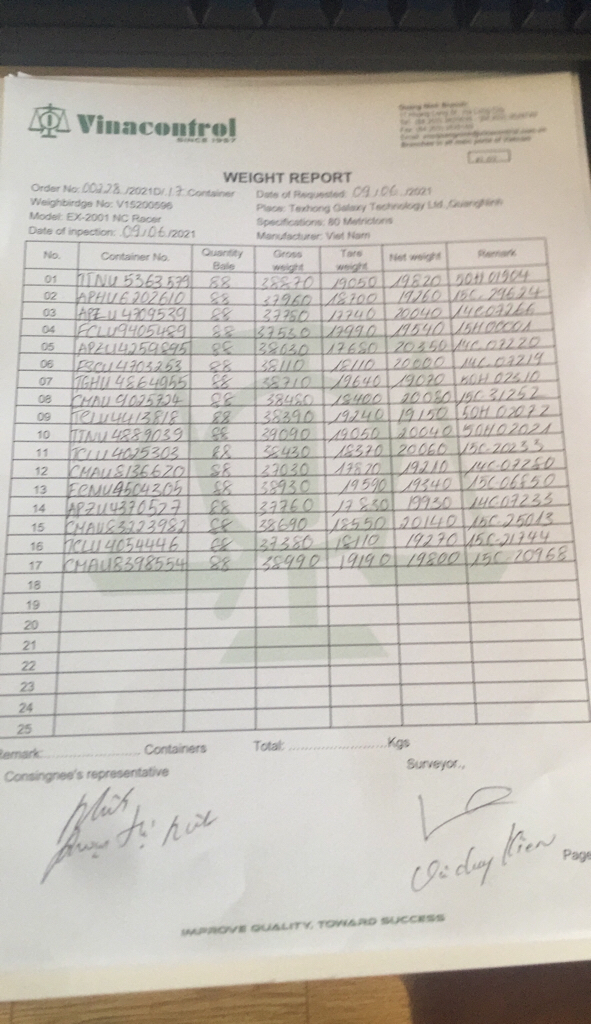 Vinacontrol
SINCE 1957
WEIGHT REPORT
Order No: 00228 /2021D/ 17 Container
Date of Requested: 09/06/2021
Weighbirdge No: V15200596
Place: Texhong Galaxy Technology Ltd., Quangninh
Model: EX-2001 NC Racer
Specifications: 80 Metrictons
Date of inpection: 09/06/2021
Manufacturer: Viet Nam
No. Container No. Quantity Bale Gross weight Tare weight Net weight Remark
01 TTNU 5363579 88 38870 19050 19820 50H 01904
02 APHU6202610 88 37960 18700 19260 15C-29624
03 APZU4709539 88 37780 17740 20040 14C07266
04 FCLU9405489 88 37530 17990 19540 15H00001
05 APZU4259895 88 38030 17680 20350 14C 07220
06 4703253 88 38110 18110 20000 14C 07219
07 TGHU4864955 88 38710 19640 19070 50H 02310
08 CMAU 88 38480 18400 20080 15C 31252
09 TCLU4413818 88 38390 19240 19150 50H 02072
10 TTNU4889039 88 39090 19050 20040 50H02021
11 TCLU4025303 88 38430 18370 20060 15C-20233
12 CMAU8136620 88 37030 17820 19210 14C-07280
13 88 38930 19590 19340 15C06850
14 APZU4370527 88 37760 17830 19930 14C07233
15 CMAU83223982 88 38690 18550 20140 15C-25013
16 TCLU4054446 88 37380 18110 19270 15C-21744
17 CMAU8398554 88 38990 19190 19800 15C-20968
18
19
20
21
22
23
24
25
Remark: Containers Total: Kgs
Consingnee's representative
Surveyor.,
Page
IMPROVE QUALITY, TOWARD SUCCESS